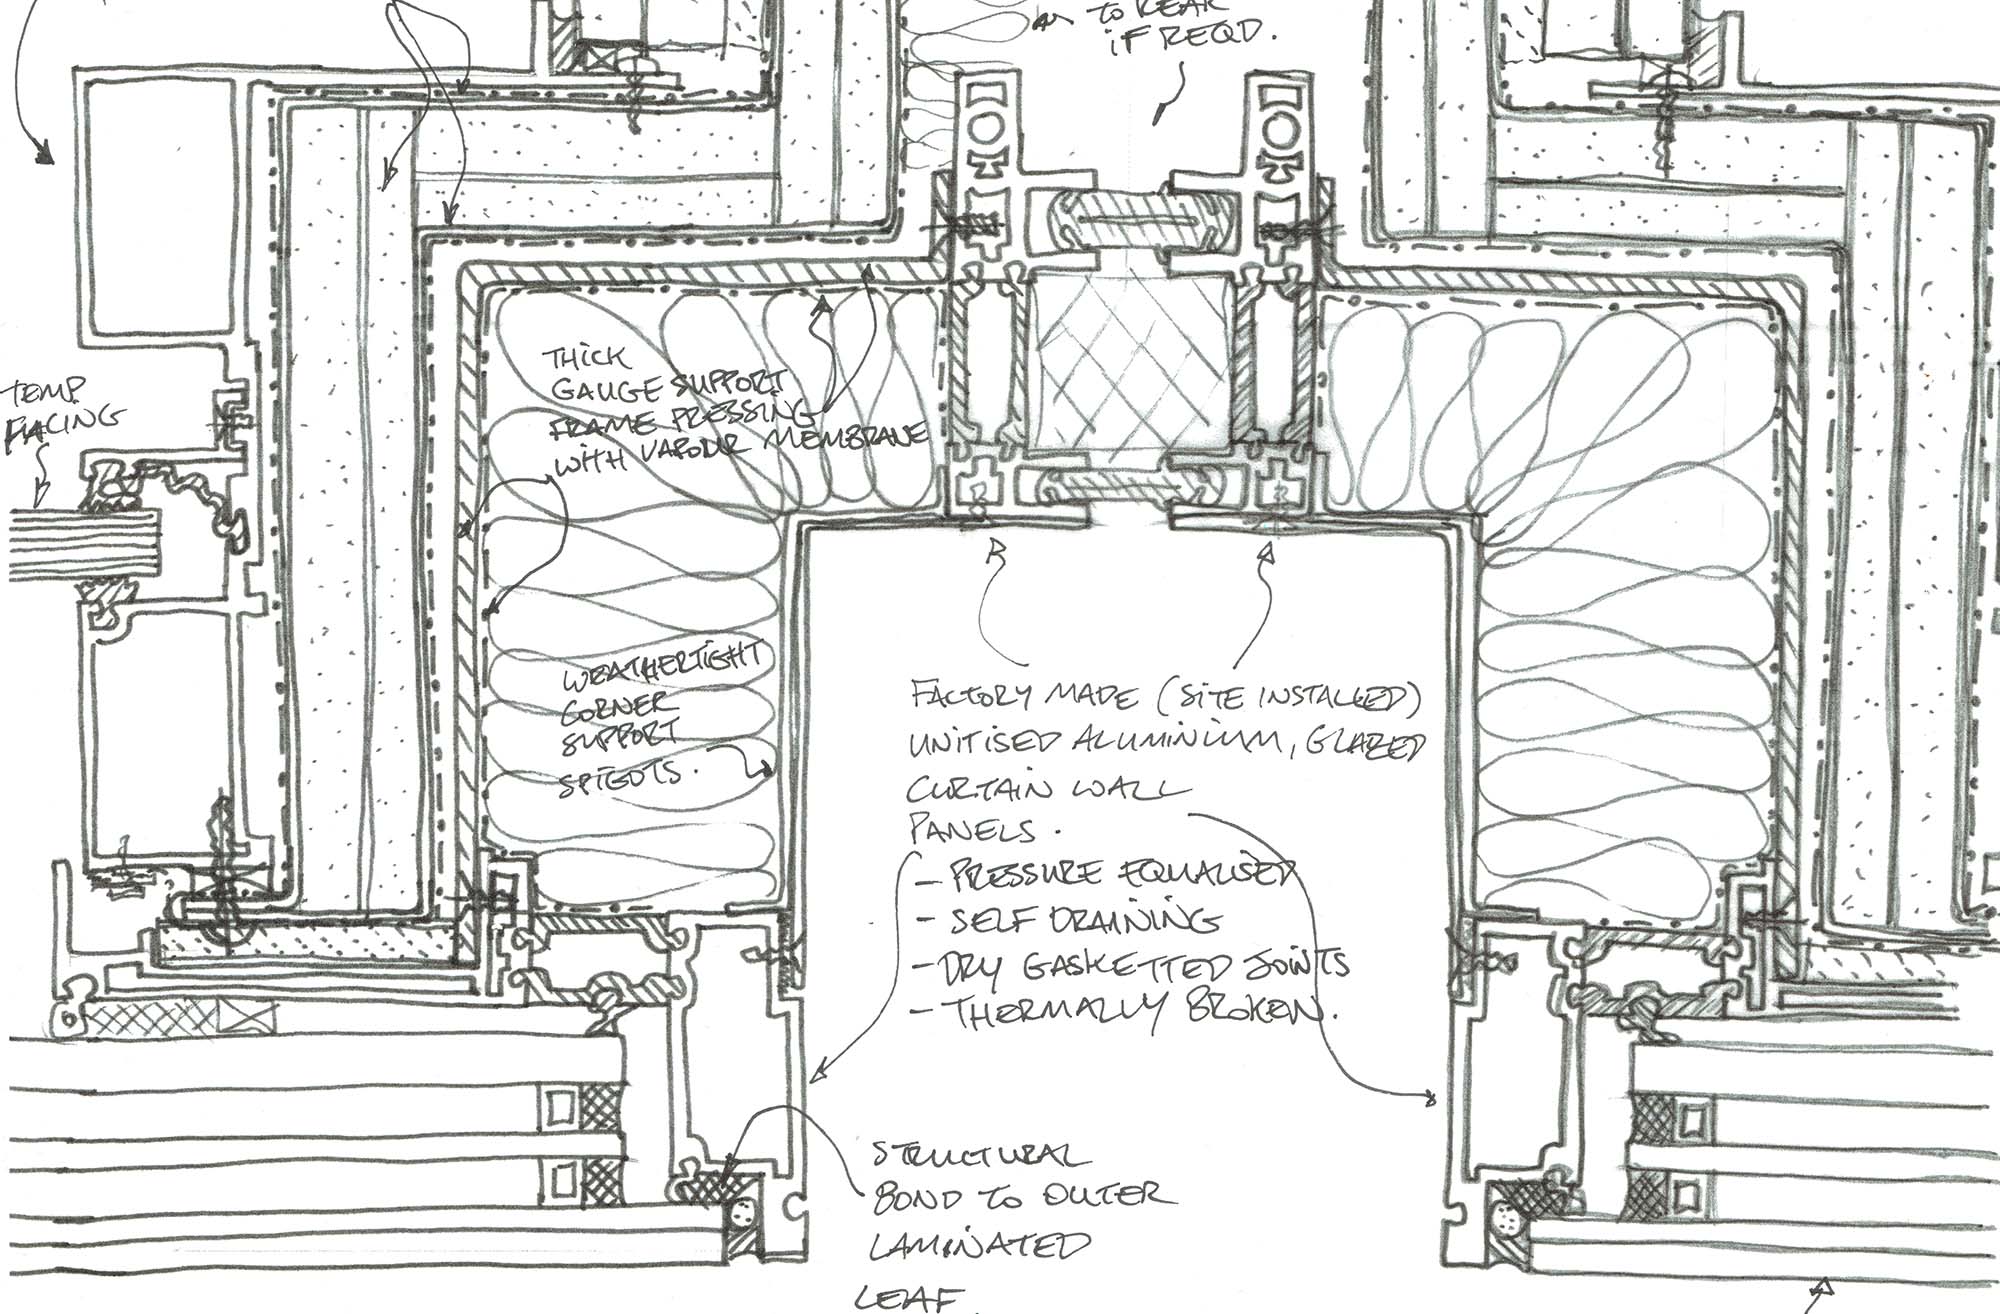 TO REAR
IF REQD.
TEMP.
FACING
THICK
GAUGE SUPPORT
FRAME PRESSING
WITH VAPOUR MEMBRANE
WEATHERTIGHT
CORNER
SUPPORT
SPIGOTS.
FACTORY MADE (SITE INSTALLED)
UNITISED ALUMINIUM, GLAZED
CURTAIN WALL
PANELS.
- PRESSURE EQUALISED
- SELF DRAINING
- DRY GASKETTED JOINTS
- THERMALLY BROKEN.
STRUCTURAL
BOND TO OUTER
LAMINATED
LEAF.